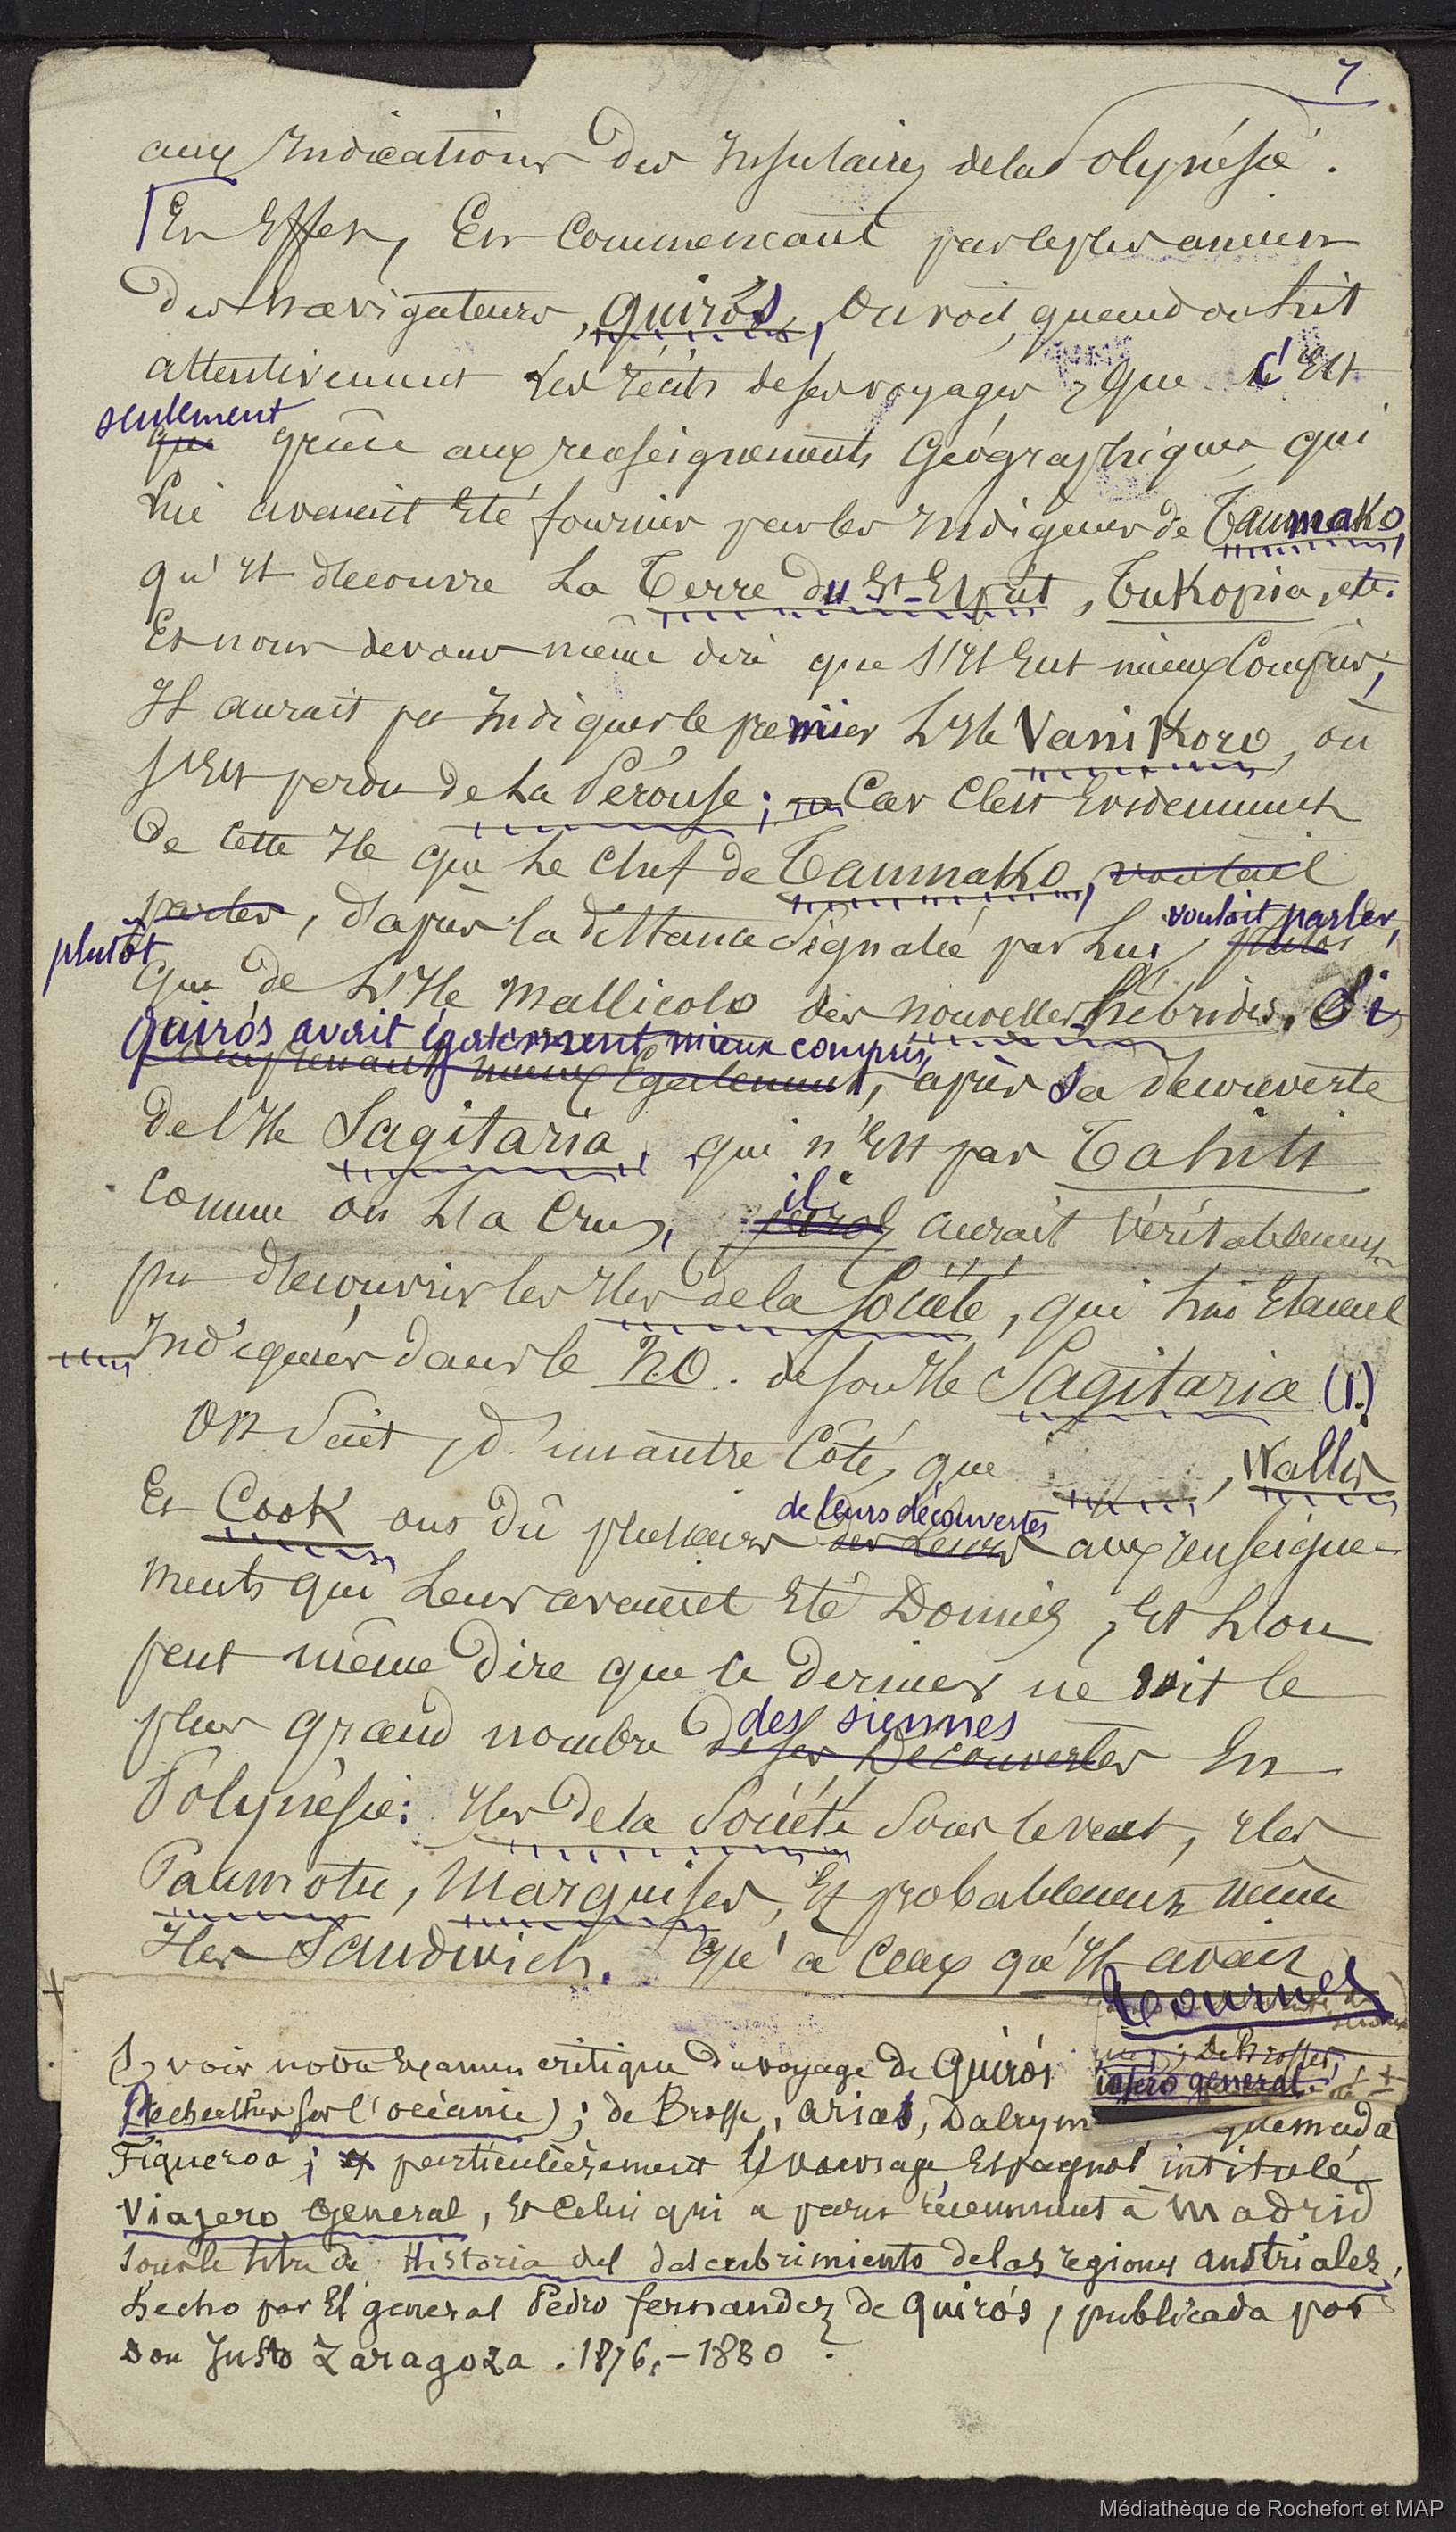 7
aux Indications des Insulaires de la Polynésie.
En Effet, En Commencant par le plus ancien
des Navigateurs, Quirós, On voit, quand on suit
attentivement Les récits de ses voyages, que c'Est
seulement
que grâce aux renseignements Géographiques qui
Lui avaient Eté fournis par les Indigènes de Taumako,
qu'Il découvre La Terre du St-Esprit, Tukopia, etc.
Et nous devons même dire que s'Il Eut mieux Compris,
Il aurait pu Indiquer le premier L'Ile Vanikoro, où
s'Est perdu de La Pérouse; Car C'est Evidemment
De Cette Ile que Le Chef de Taumako, voulait
parler, d'après la distance Signalée par Lui, voulait parler, plutot
plutôt
que de L'Ile Mallicolo des Nouvelles Hébrides. Si
Quirós avait également mieux compris,
Comprenant mieux Egalement, après sa découverte
de l'Ile Sagitaria, qui n'Est pas Tahiti
Comme on L'a Cru, il aurait Véritablement
pu découvrir les Iles de la Société, qui Lui Etaient
Indiquées dans le N.O. de son Ile Sagitaria (1.)
On Sait, d'un autre Côté, que , Wallis
de leurs découvertes
Et Cook ont Dû plusieurs des Leurs aux renseigne-
ments qui Leur avaient Eté Donnés, Et L'on
peut même Dire que ce dernier ne doit le
des siennes
plus grand nombre de ses Découvertes En
Polynésie: Iles de la Société Sous le vent, Iles
Paumotu, Marquises, Et probablement même
Iles Sandwich, qu'à Ceux qu'Il avait
Tournez
De Brosses,
viajero general.
(1) voir notre Examen critique du voyage de Quirós
(Recherches sur l'océanie); de Brosse, Arias, Dalrym quemada
Figueroa; et particulièrement L'ouvrage Espagnol intitulé
Viajero General, Et Celui qui a paru récemment à Madrid
sous le titre de: Historia del descubrimiento de las regiones austriales,
hecho por El general Pedro fernandez de Quirós, publicada por
Don Justo Zaragoza. 1876.-1880.
Médiathèque de Rochefort et MAP